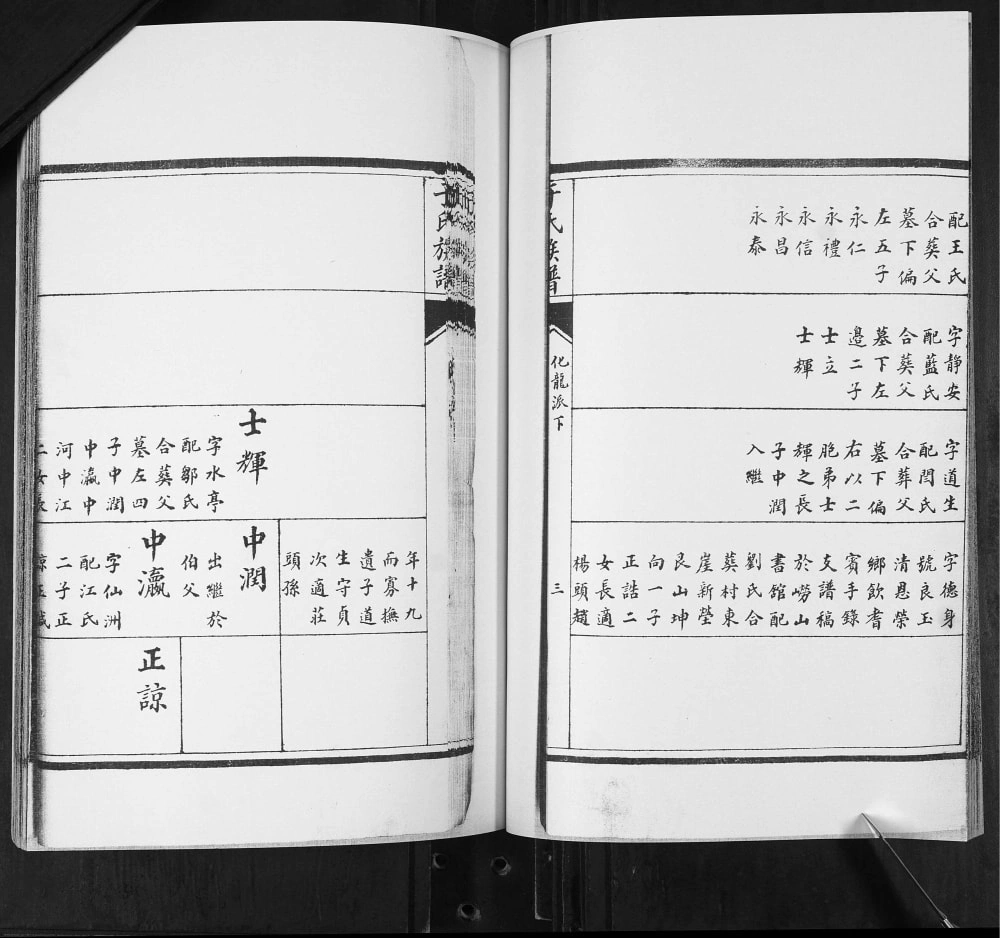 配王氏
合葬父
墓下偏
左五子
永仁
永禮
永信
永昌
永泰
字靜安
配藍氏
合葬父
墓下左
邉二子
士立
士輝
字道生
配閆氏
合葬父
墓下偏
右以二
胞弟士
輝之長
子中潤
入繼
字德身
號良玉
清恩榮
鄉飲耆
賓手錄
支譜稿
於嶗山
書館配
劉氏合
葬村東
崖新塋
艮山坤
向一子
正誥二
女長適
楊頭趙
氏族譜
化龍派下
三
氏族譜
士輝
字水亭
配鄒氏
合葬父
墓左四
子中潤
中瀛中
河中江
二女長
年十九
而寡撫
遺子道
生守貞
次適莊
頭孫
中潤
出繼於
伯父
中瀛
字仙洲
配江氏
二子正
諒正誠
正諒